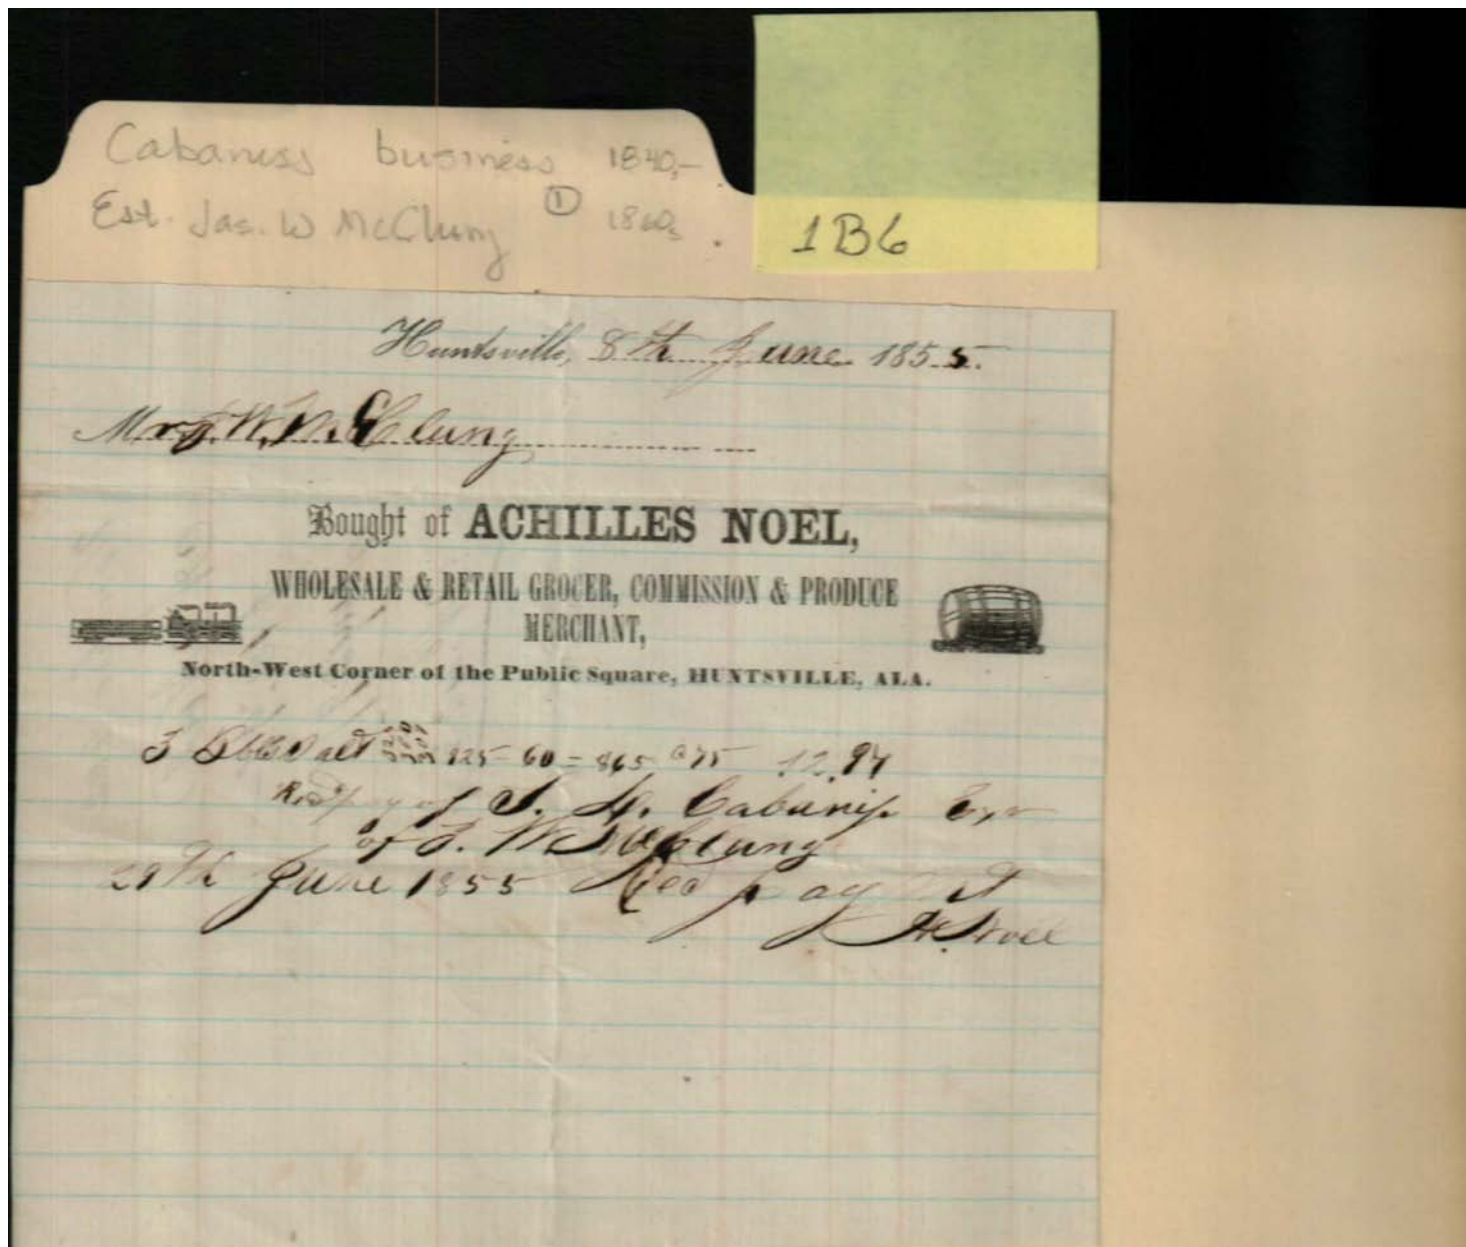 Cabaness business 1840,-
Est. Jas. W McClung ① 1860s.
1B6
Huntsville, 8th June 1855.
W. McClung
Bought of ACHILLES NOEL,
WHOLESALE & RETAIL GROCER, COMMISSION & PRODUCE
MERCHANT,
North-West Corner of the Public Square, HUNTSVILLE, ALA.
3 Salt 925 - 60 = 865 @ 12.94
of S. H. Cabaniss Exr
of J. W. McClung
29th June 1855 Recd payt
A Noel